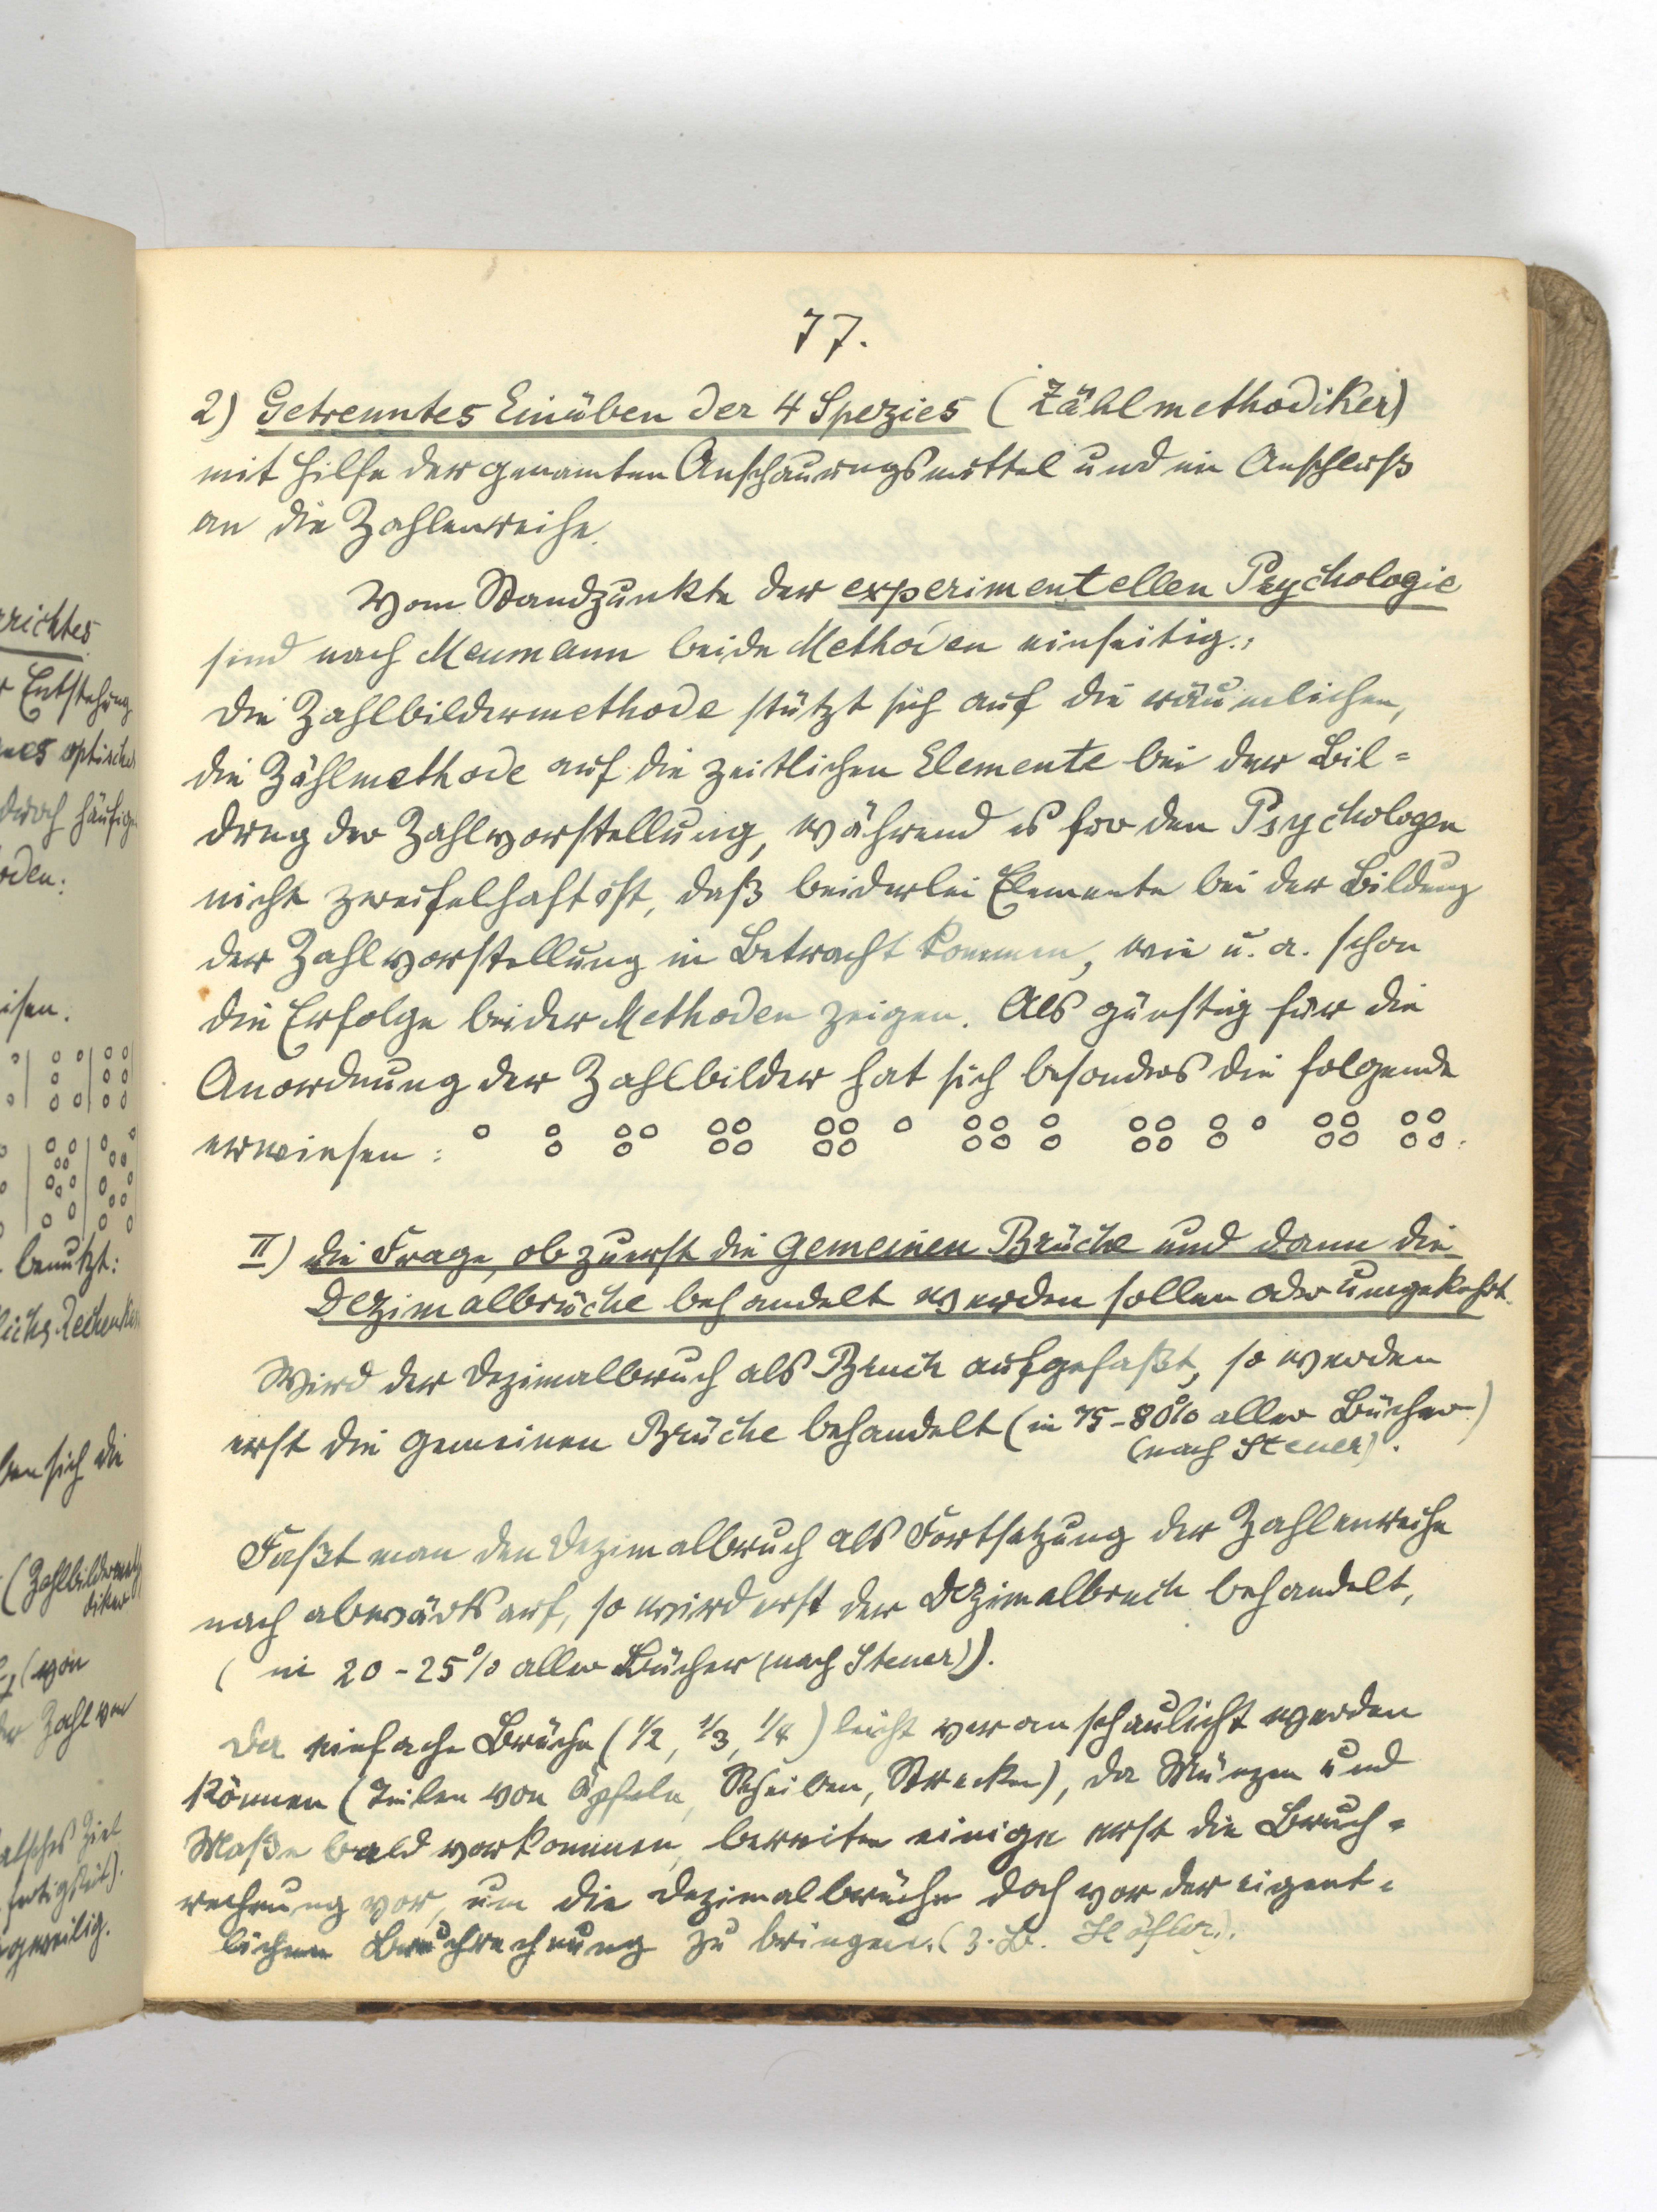 77.
2) Getrenntes Einüben der 4 Spezies (Zählmethodiker)
mit Hilfe der genannten Anschauungsmittel und im Anschluß
an die Zahlenreihe.
Vom Standpunkte der experimentellen Psychologie
sind nach Meumann beide Methoden einseitig:
Die Zahlbildermethode stützt sich auf die räumlichen,
die Zählmethode auf die zeitlichen Elemente bei der Bil=
dung der Zahlvorstellung, während es für den Psychologen
nicht zweifelhaft ist, daß beiderlei Elemente bei der Bildung
der Zahlvorstellung in Betracht kommen, wie u. a. schon
die Erfolge beider Methoden zeigen. Als günstig für die
Anordnung der Zahlbilder hat sich besonders die folgende
erwiesen:
II) Die Frage, ob zuerst die gemeinen Brüche und dann die
Dezimalbrüche behandelt werden sollen oder umgekehrt.
Wird der Dezimalbruch als Bruch aufgefaßt, so werden
erst die gemeinen Brüche behandelt (in 75-80% aller Bücher)
(nach Steuer).
Faßt man den Dezimalbruch als Fortsetzung der Zahlenreihe
nach abwärts auf, so wird erst der Dezimalbruch behandelt,
(in 20-25% aller Bücher (nach Steuer)).
Da einfache Brüche (1/2, 1/3, 1/4) leicht veranschaulicht werden
können (Teilen von Äpfeln, Scheiben, Strecken), da Münzen und
Maße bald vorkommen, bereiten einige erst die Bruch=
rechnung vor, um die Dezimalbrüche doch vor der eigent=
lichen Bruchrechnung zu bringen. (z. B. Höfler).
richtes
Entstehung
optischen
durch häufige
oden:
isen.
benutzt:
ben sich die
(Zahlbildermeth
diker
(von
Zahl von
Ziel